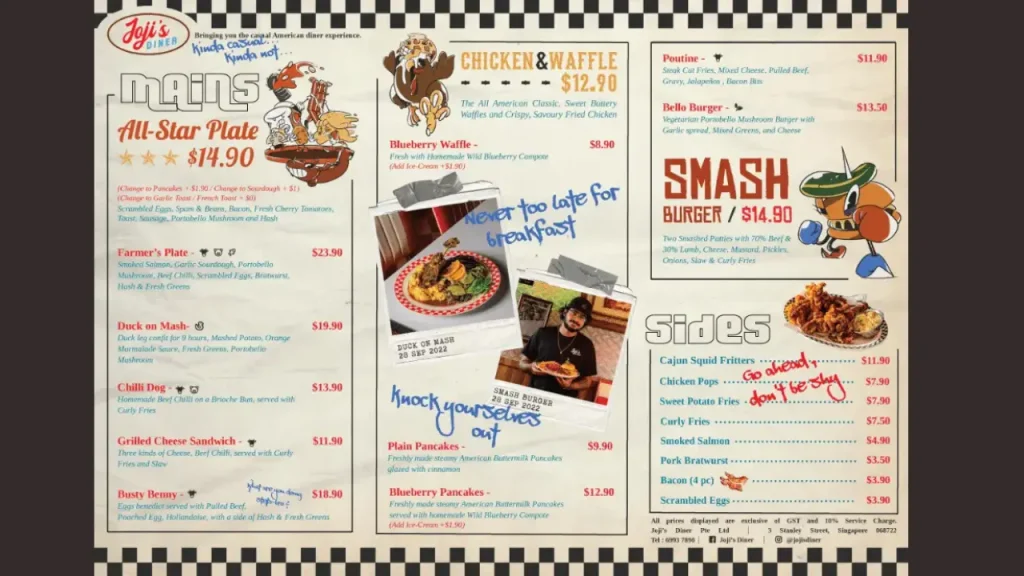 Joji's
DINER
Bringing you the casual American diner experience.
Kinda casual...
Kinda not...
Mains
All-Star Plate
$14.90
(Change to Pancakes + $1.90 / Change to Sourdough + $1)
(Change to Garlic Toast / French Toast + $0)
Scrambled Eggs, Spam & Beans, Bacon, Fresh Cherry Tomatoes,
Toast, Sausage, Portobello Mushroom and Hash
Farmer's Plate - $23.90
Smoked Salmon, Garlic Sourdough, Portobello
Mushroom, Beef Chilli, Scrambled Eggs, Bratwurst,
Hash & Fresh Greens
Duck on Mash- $19.90
Duck leg confit for 9 hours, Mashed Potato, Orange
Marmalade Sauce, Fresh Greens, Portobello
Mushroom
Chilli Dog - $13.90
Homemade Beef Chilli on a Brioche Bun, served with
Curly Fries
Grilled Cheese Sandwich - $11.90
Three kinds of Cheese, Beef Chilli, served with Curly
Fries and Slaw
Busty Benny - $18.90
Eggs benedict served with Pulled Beef,
Poached Egg, Hollandaise, with a side of Hash & Fresh Greens
CHICKEN&WAFFLE
$12.90
The All American Classic, Sweet Buttery
Waffles and Crispy, Savoury Fried Chicken
Blueberry Waffle - $8.90
Fresh with Homemade Wild Blueberry Compote
(Add Ice-Cream +$1.90)
Never too late for
breakfast
DUCK ON MASH
28 SEP 2022
SMASH BURGER
28 SEP 2022
Knock yourselves
out
Plain Pancakes - $9.90
Freshly made steamy American Buttermilk Pancakes
glazed with cinnamon
Blueberry Pancakes - $12.90
Freshly made steamy American Buttermilk Pancakes
served with homemade Wild Blueberry Compote
(Add Ice-Cream +$1.90)
Poutine - $11.90
Steak Cut Fries, Mixed Cheese, Pulled Beef,
Gravy, Jalapeños , Bacon Bits
Bello Burger - $13.50
Vegetarian Portobello Mushroom Burger with
Garlic spread, Mixed Greens, and Cheese
SMASH
BURGER / $14.90
Two Smashed Patties with 70% Beef &
30% Lamb, Cheese, Mustard, Pickles,
Onions, Slaw & Curly Fries
Sides
Cajun Squid Fritters $11.90
Go ahead,
Chicken Pops $7.90
don't be shy
Sweet Potato Fries $7.90
Curly Fries $7.50
Smoked Salmon $4.90
Pork Bratwurst $3.50
Bacon (4 pc) $3.90
Scrambled Eggs $3.90
All prices displayed are exclusive of GST and 10% Service Charge.
Joji's Diner Pte Ltd | 3 Stanley Street, Singapore 068722
Tel : 6993 7890 | Joji's Diner | @jojisdiner